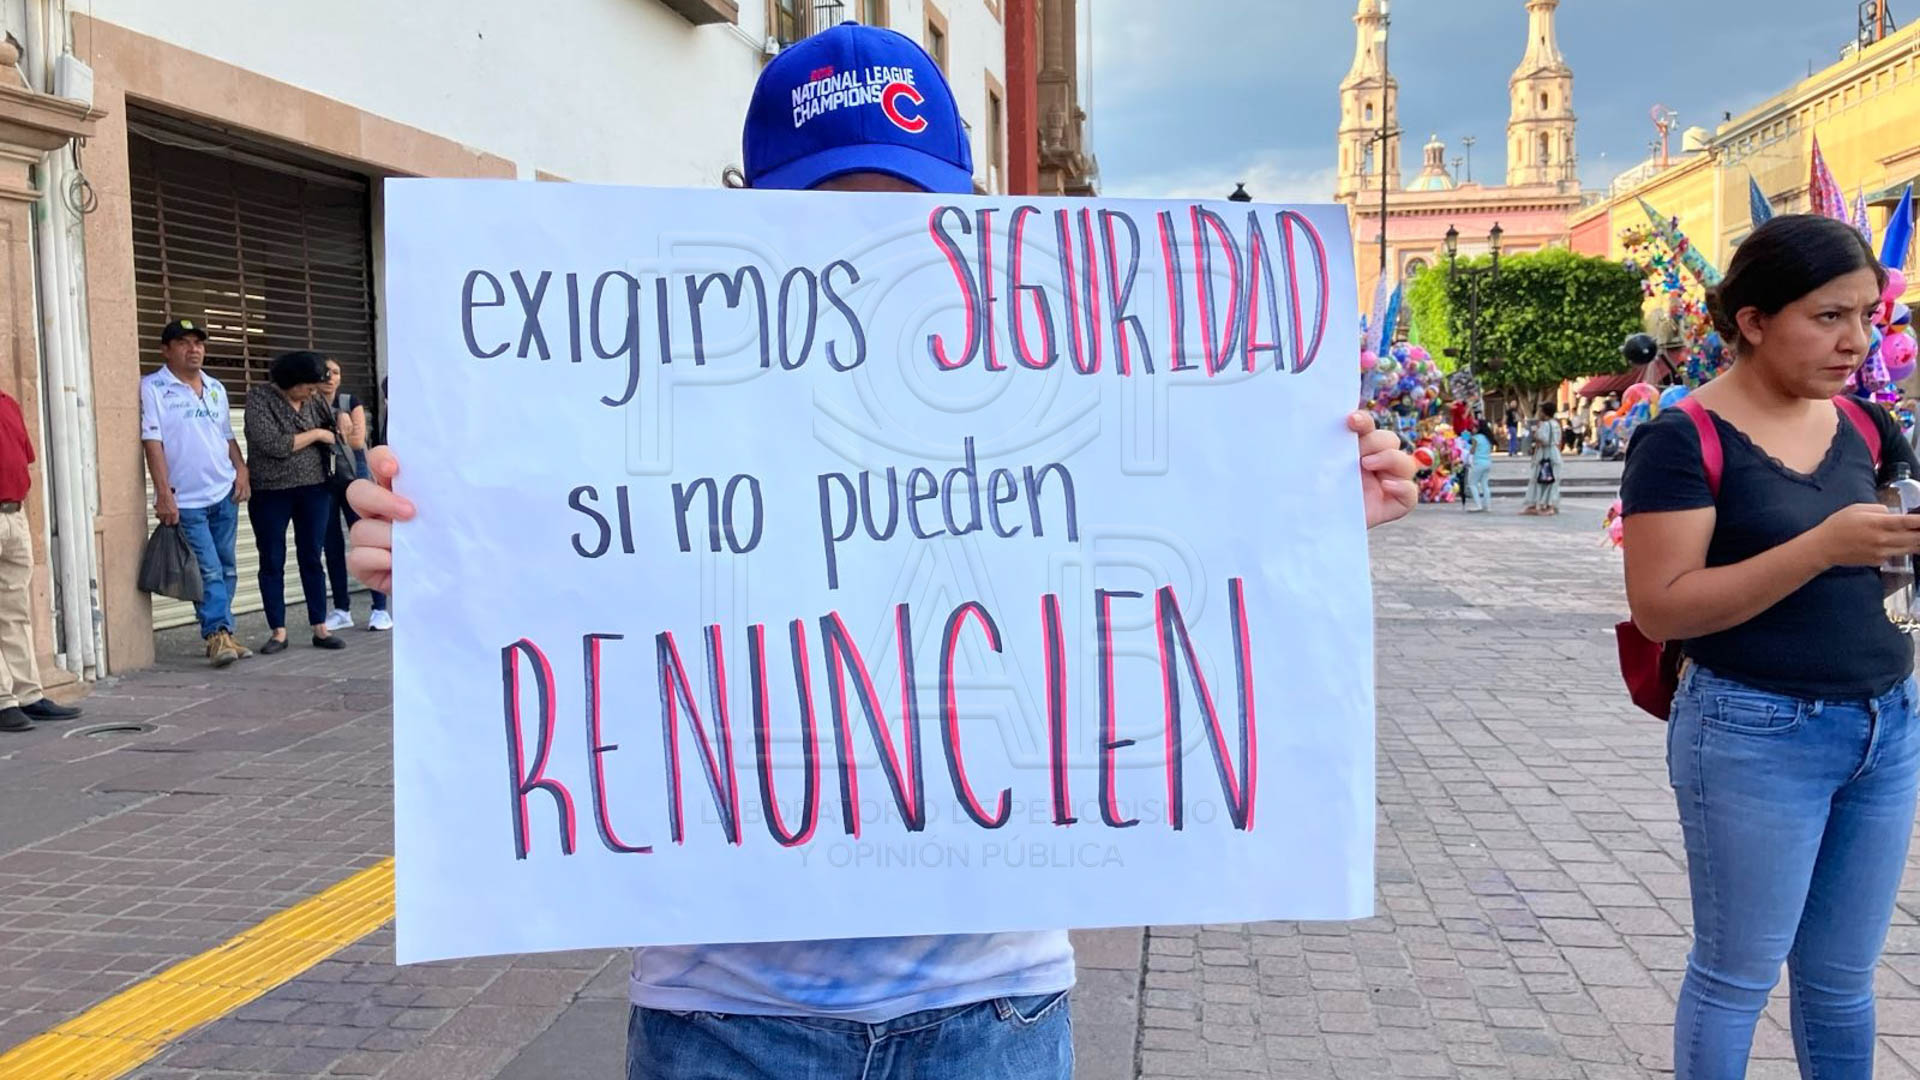 2016
NATIONAL LEAGUE
CHAMPIONS C
exigimos SEGURIDAD
si no pueden
RENUNCIEN
POP
LAB
LABORATORIO DE PERIODISMO
Y OPINIÓN PÚBLICA